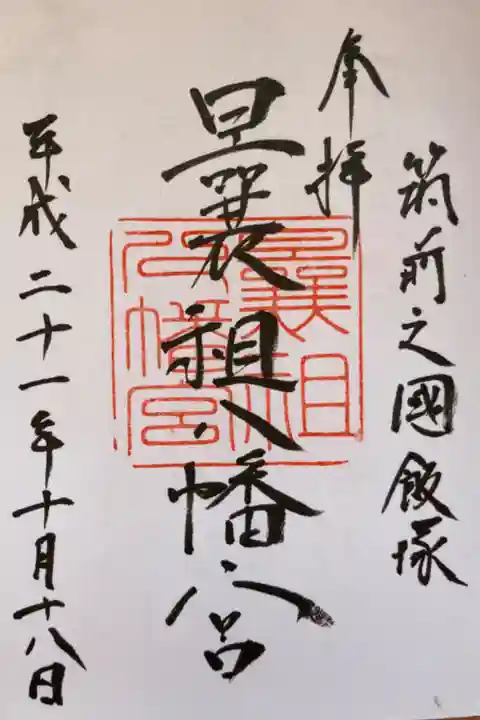 筑前之國飯塚
奉拝
曩祖八幡宮
曩祖八幡宮
平成二十一年十月十八日